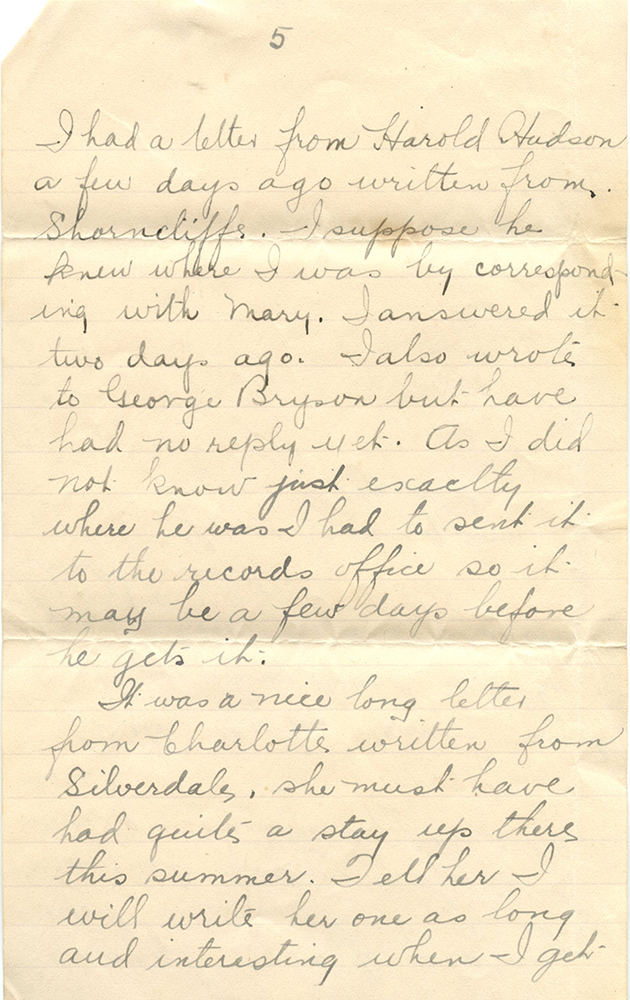 5
I had a letter from Harold Hudson
a few days ago written from.
Shorncliffe. I suppose he
knew where I was by correspond-
ing with Mary. I answered it
two days ago. I also wrote
to George Bryson but have
had no reply yet. As I did
not know just exaclty
where he was I had to sent it
to the records office so it
may be a few days before
he gets it.
It was a nice long letter
from Charlotte written from
Silverdale, she must have
had quite a stay up there
this summer. Tell her I
will write her one as long
and interesting when I get